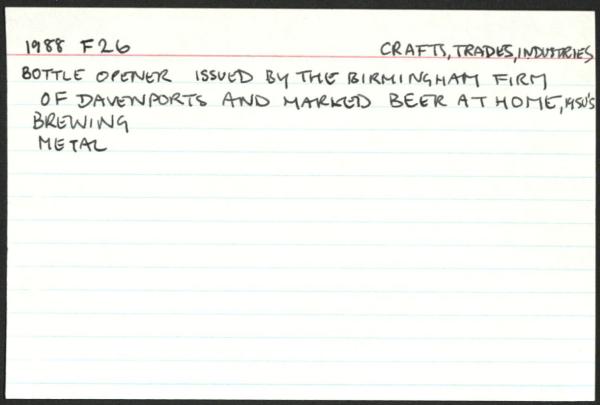 1988 F26 CRAFTS, TRADES, INDUSTRIES
BOTTLE OPENER ISSUED BY THE BIRMINGHAM FIRM
OF DAVENPORTS AND MARKED BEER AT HOME,
BREWING
METAL